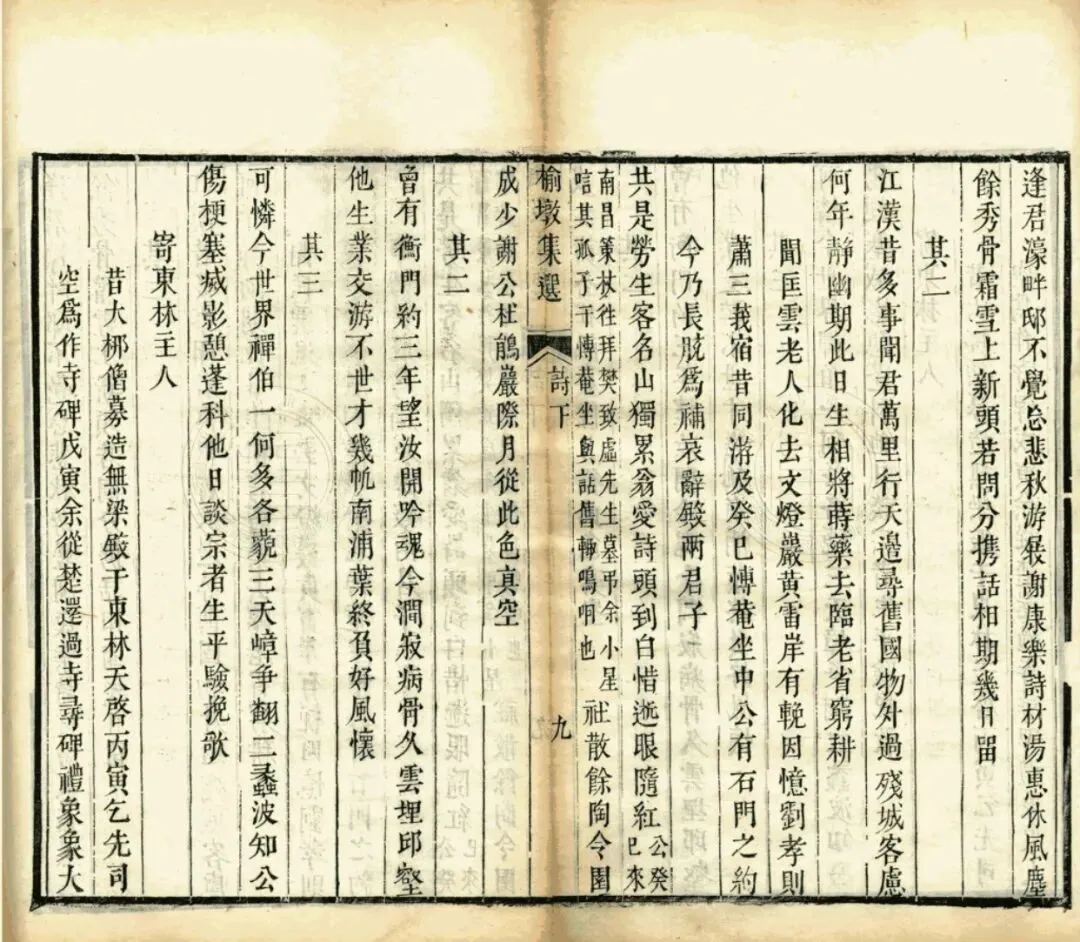 逢君濠畔邸不覺忘悲秋游屐謝康樂詩材湯惠休風塵
餘秀骨霜雪上新頭若問分攜話相期幾日畱
其二
江漢昔多事聞君萬里行天邉尋舊國物外過殘城客慮
何年靜幽期此日生相將蒔藥去臨老省窮耕
聞匡雲老人化去文燈巖黃雷岸有輓因憶劉孝則
蕭三莪宿昔同游及癸巳愽菴坐中公有石門之約
今乃長脫爲補哀辭毀兩君子
共是勞生客名山獨累翁愛詩頭到白惜逝眼隨紅公癸
巳來
南昌策杖徃拜樊致虛先生墓弔余小星
唁其孤子于愽菴坐與話舊輙鳴咽也
社散餘陶令園
榆墩集選
詩下
九
成少謝公杜鵑巖際月從此色真空
其二
曾有衡門約三年望汝開吟魂今澗寂病骨久雲埋邱壑
他生業交游不世才幾帆南浦葉終負好風懷
其三
可憐今世界禪伯一何多各藐三天嶂争翻二蠡波知公
傷梗塞滅影憩蓬科他日談宗者生平驗挽歌
寄東林主人
昔大梛僧募造無梁毀于東林天啓丙寅乞先司
空爲作寺碑戊寅余從楚還過寺尋碑禮象象大